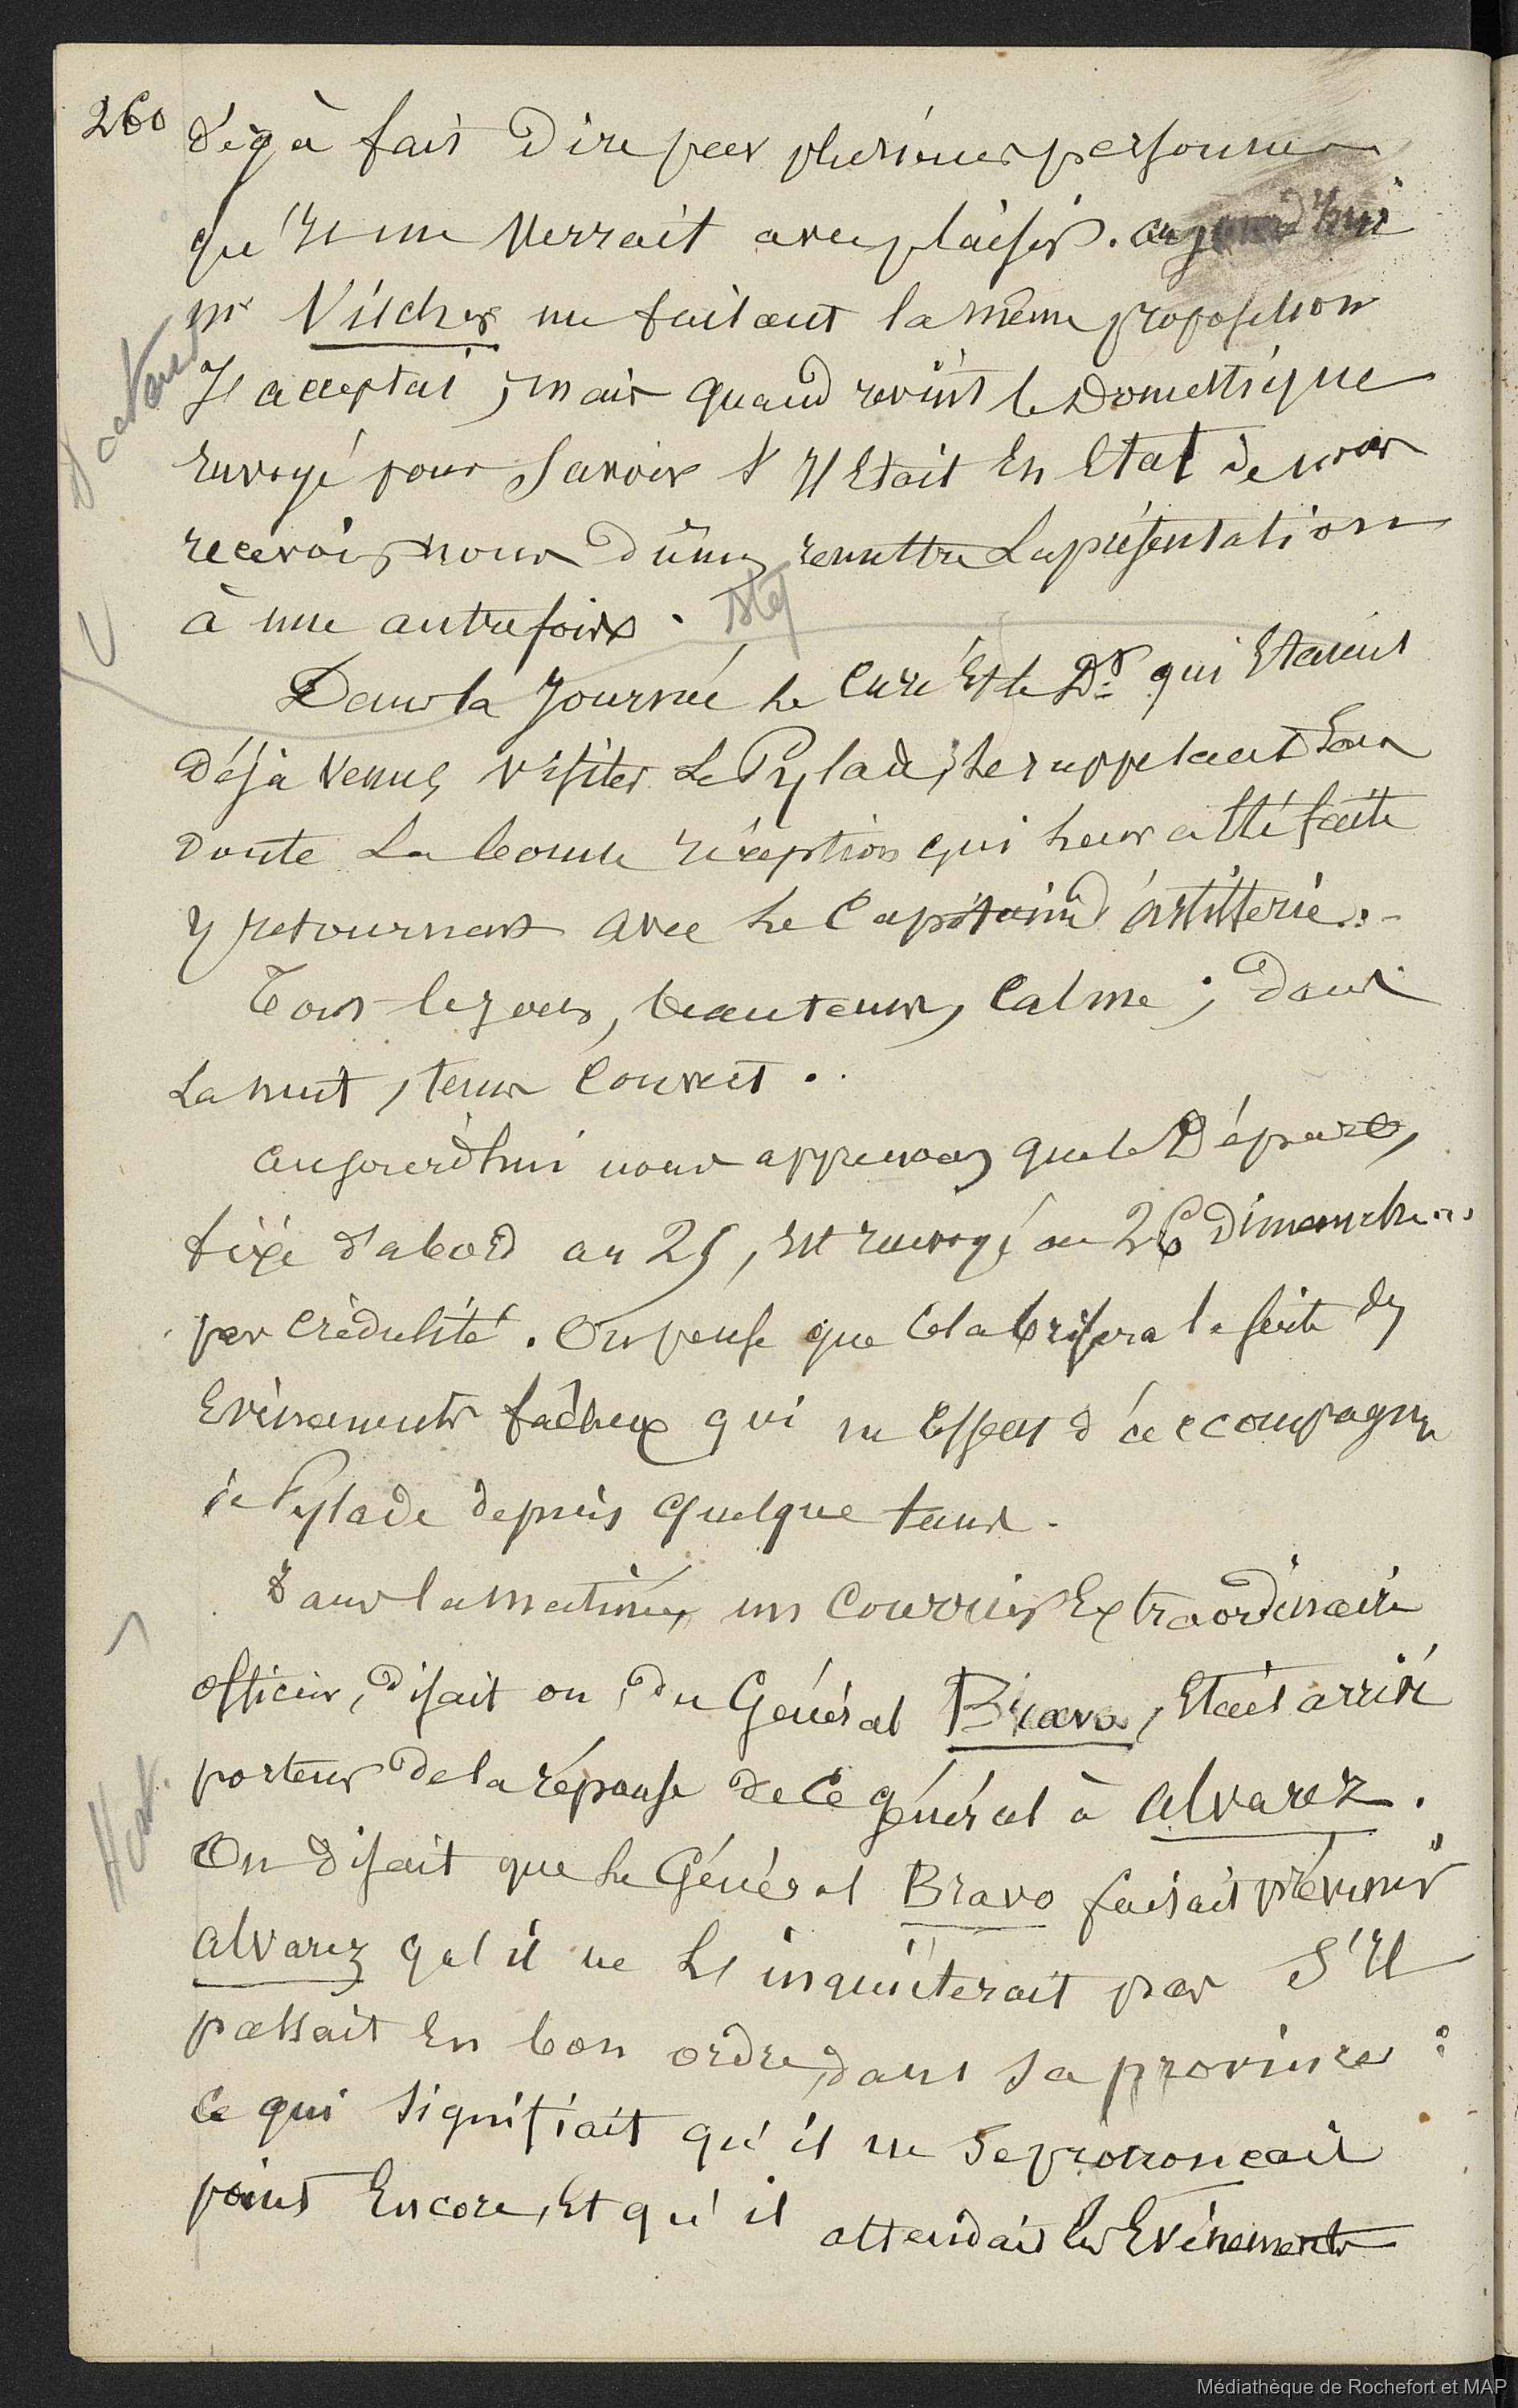 260
déjà fait dire par plusieurs personnes
qu'il me verrait avec plaisir. aujourd'hui
mr Vischer me faisant la même proposition
J'acceptai ; mais quand revint le Domestique
Envoyé pour Savoir s'Il Etait En Etat de nous
recevoir nous dûmes remettre La présentation
à une autre fois.
Dans la Journée le Curé Et le Dr qui Etaient
Déjà venus visiter Le Pylade, se rappelant sans
doute La bonne réception qui leur a été faite
y retournent avec le Capitaine d'artillerie.
Tous les jours, beau tems, Calme ; dans
La nuit, tems Couvert.
aujourd'hui nous apprenons que le Départ,
fixé d'abord au 25, est renvoyé au 26 dimanche
par Crédulité. On pense que Cela brisera la suite des
Evènements fâcheux qui ne Cessent d'accompagner
le Pylade depuis Quelque tems.
Dans la matinée, un Courrier Extraordinaire
officier, disait on, du Général Bravo, Etait arrivé
porteur de la réponse de Ce général à Alvarez.
On disait que le Général Bravo faisait prévenir
Alvarez qu'il ne L'inquièterait pas S'Il
passait En bon ordre, dans Sa province :
Ce qui Signifiait qu'il ne se prononcait
point Encore, Et qu'il attendait les Evénements